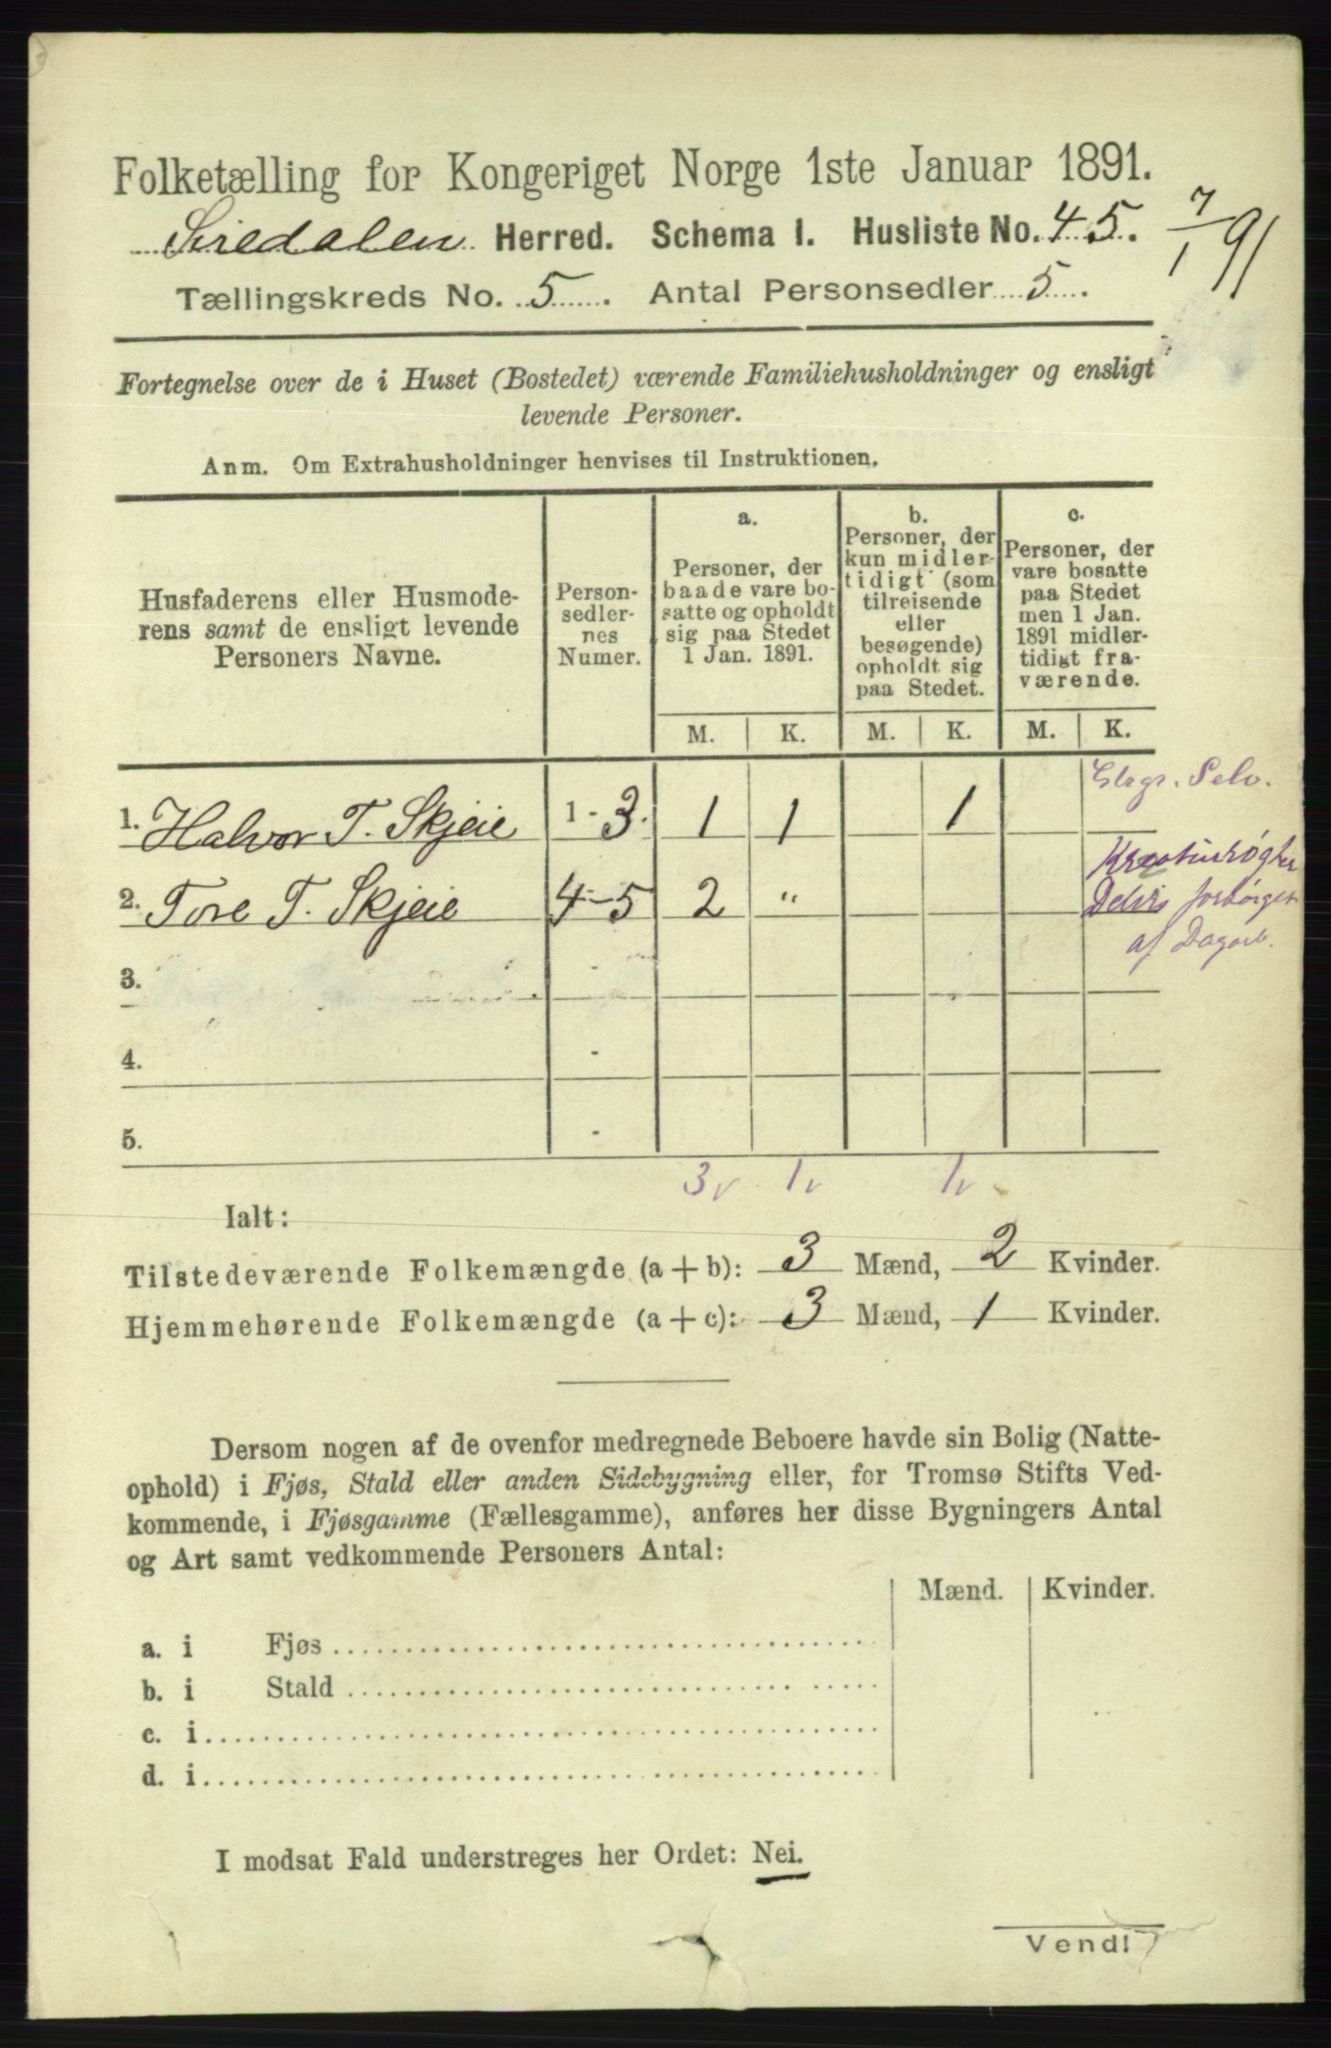 Folketælling for Kongeriget Norge 1ste Januar 1891.
Siredalen Herred. Schema I. Husliste No. 45.
7/1 91
Tællingskreds No. 5. Antal Personsedler 5.
Fortegnelse over de i Huset (Bostedet) værende Familiehusholdninger og ensligt
levende Personer.
Anm. Om Extrahusholdninger henvises til Instruktionen.
Husfaderens eller Husmode-
rens samt de ensligt levende
Personers Navne.
Person-
sedler-
nes
Numer.
a.
Personer, der
baade vare bo-
satte og opholdt
sig paa Stedet
1 Jan. 1891.
b.
Personer, der
kun midler-
tidigt (som
tilreisende
eller
besøgende)
opholdt sig
paa Stedet.
c.
Personer, der
vare bosatte
paa Stedet
men 1 Jan.
1891 midler-
tidigt fra-
værende.
M. K. M. K. M. K.
Selv.
1. Halvor T. Skjeie 1-3. 1 1 1
2. Tore T. Skjeie 4-5 2 "
Delvis forsørget
af Dagarb.
3. -
4. -
5. -
3v 1v 1v
Ialt:
Tilstedeværende Folkemængde (a + b): 3 Mænd, 2 Kvinder.
Hjemmehørende Folkemængde (a + c): 3 Mænd, 1 Kvinder.
Dersom nogen af de ovenfor medregnede Beboere havde sin Bolig (Natte-
ophold) i Fjøs, Stald eller anden Sidebygning eller, for Tromsø Stifts Ved-
kommende, i Fjøsgamme (Fællesgamme), anføres her disse Bygningers Antal
og Art samt vedkommende Personers Antal:
Mænd. Kvinder.
a. i Fjøs
b. i Stald
c. i
d. i
I modsat Fald understreges her Ordet: Nei.
Vend!